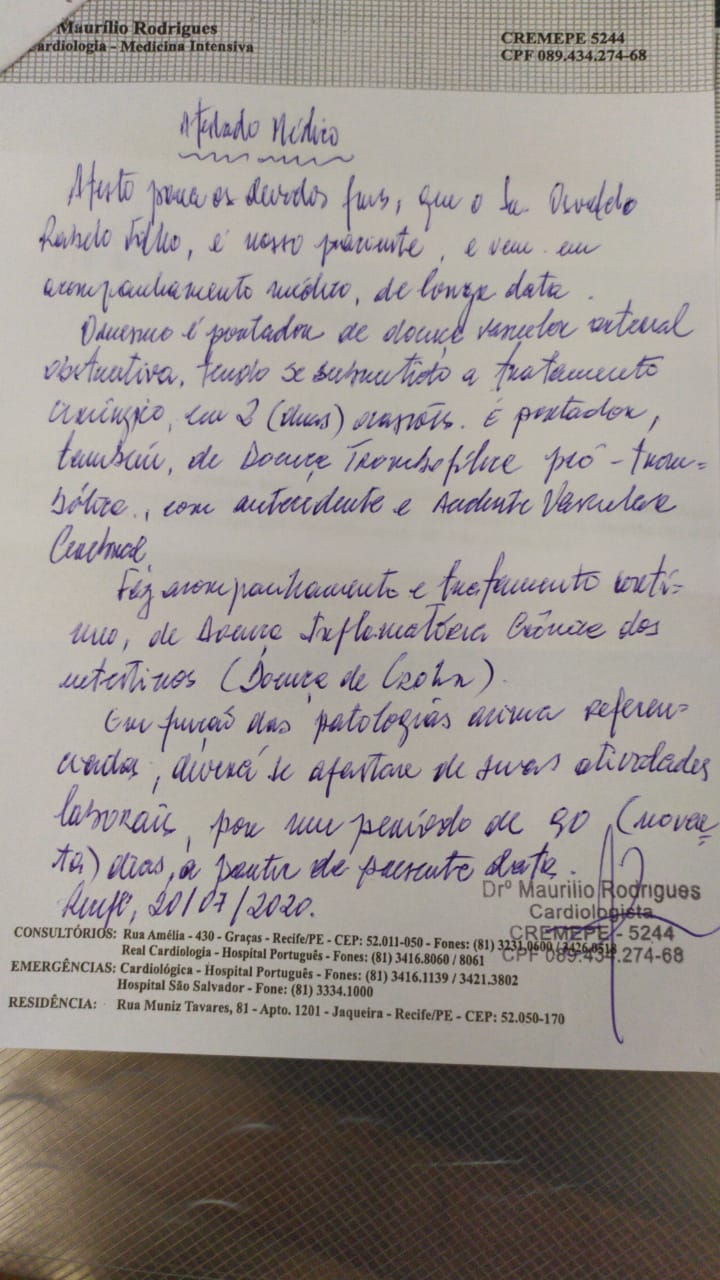 Maurílio Rodrigues
Cardiologia - Medicina Intensiva
CREMEPE 5244
CPF 089.434.274-68
Atestado Médico
Atesto para os devidos fins, que o Sr. Osvaldo
Rabelo Filho, é nosso paciente, e vem em
acompanhamento médico, de longa data.
O mesmo é portador de doença vascular arterial
obstrutiva, tendo se submetido a tratamento
cirúrgico, em 2 (duas) ocasiões. É portador,
também, de Doença Trombofílica pró-trom=
bótica, com antecedente e Acidente Vascular
Cerebral
Faz acompanhamento e tratamento contí-
nuo, de Doença Inflamatória Crônica dos
intestinos (Doença de Crohn).
Em função das patologias acima referen-
ciadas, deverá se afastar de suas atividades
laborais, por um período de 90 (noven=
ta) dias, a partir da presente data.
Recife, 20/07/2020.
Drº Maurilio Rodrigues
Cardiologista
CREMEPE - 5244
CPF 089.434.274-68
CONSULTÓRIOS: Rua Amélia - 430 - Graças - Recife/PE - CEP: 52.011-050 - Fones: (81) 3231.0600 / 3426.0518
Real Cardiologia - Hospital Português - Fones: (81) 3416.8060 / 8061
EMERGÊNCIAS: Cardiológica - Hospital Português - Fones: (81) 3416.1139 / 3421.3802
Hospital São Salvador - Fone: (81) 3334.1000
RESIDÊNCIA: Rua Muniz Tavares, 81 - Apto. 1201 - Jaqueira - Recife/PE - CEP: 52.050-170